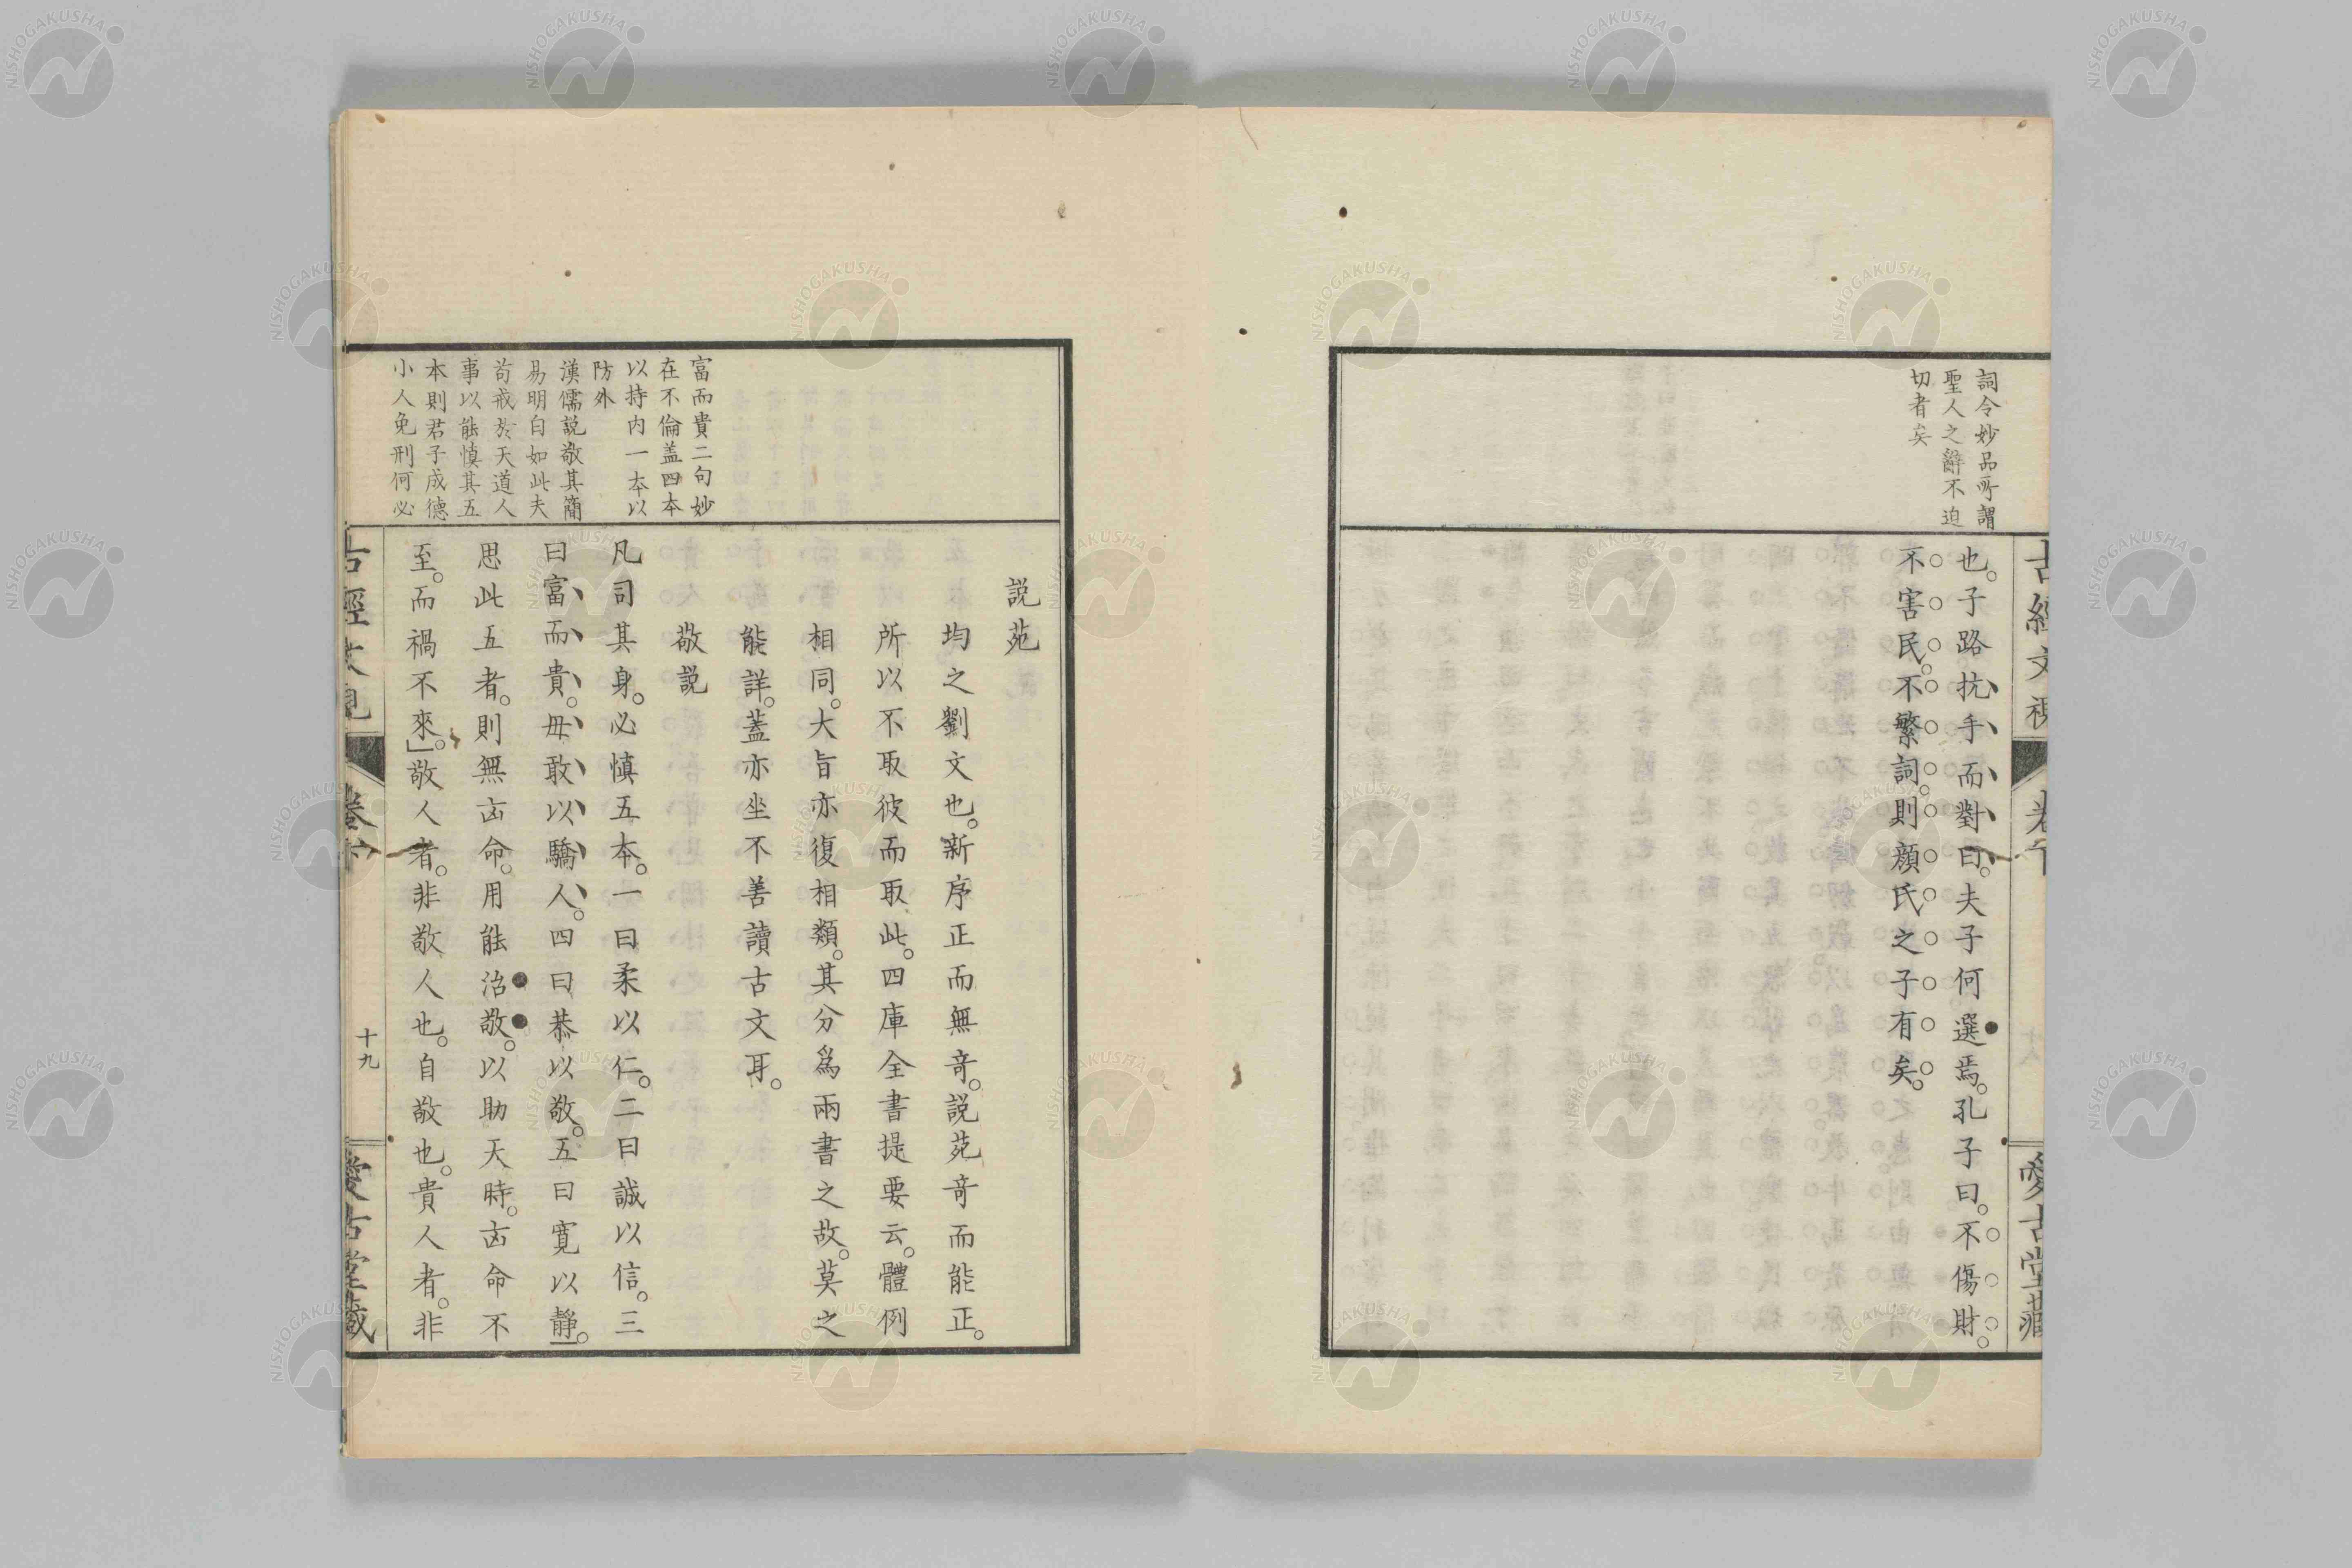 詞令妙品所謂
聖人之辭不迫
切者矣
也。子路抗手而對曰。夫子何選焉。孔子曰。不傷財。
不害民。不繁詞。則顏氏之子有矣。
愛古堂藏
說苑
均之劉文也。新序正而無奇。說苑奇而能正。
所以不取彼而取此。四庫全書提要云。體例
相同。大旨亦復相類。其分爲兩書之故。莫之
能詳。蓋亦坐不善讀古文耳。
敬說
凡司其身。必慎五本。一曰柔以仁。二曰誠以信。三
曰富而貴。毋敢以驕人。四曰恭以敬。五曰寬以靜。
思此五者。則無凶命。用能治敬。以助天時。凶命不
至。而禍不來。」敬人者。非敬人也。自敬也。貴人者。非
富而貴二句妙
在不倫蓋四本
以持内一本以
防外
漢儒說敬其簡
易明白如此夫
苟戒於天道人
事以能慎其五
本則君子成德
小人免刑何必
十九
愛古堂藏
NISHOGAKUSHA